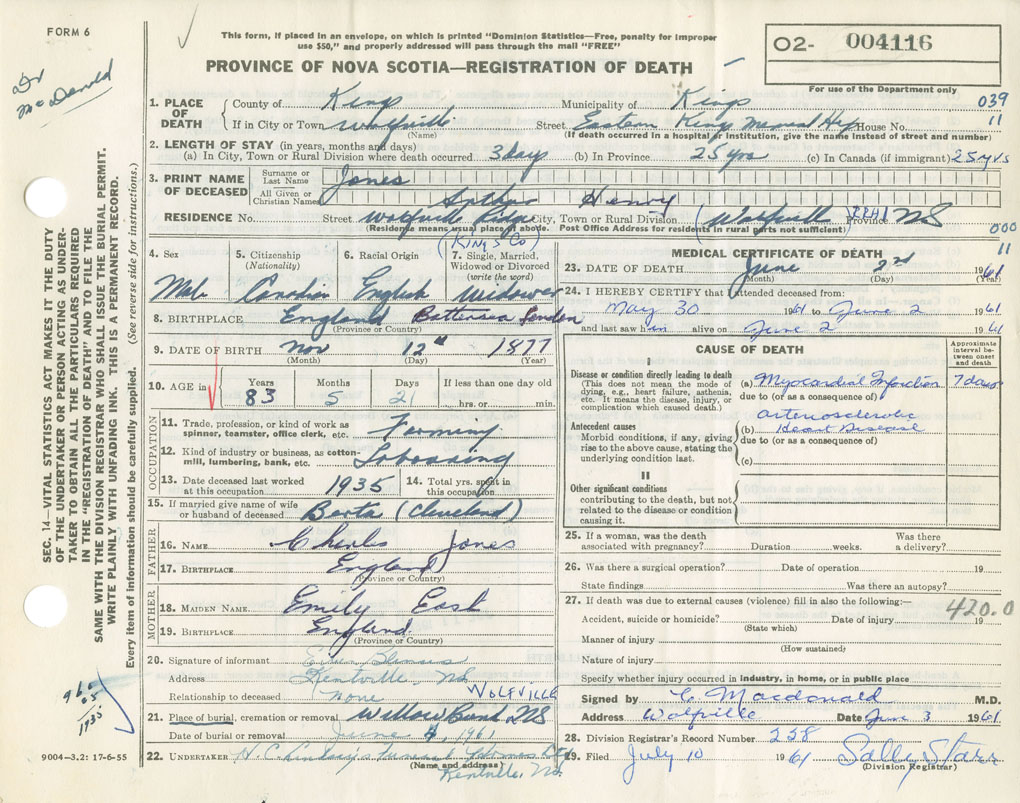 FORM 6
Dr
McDonald
This form, if placed in an envelope, on which is printed "Dominion Statistics—Free, penalty for improper
use $50," and properly addressed will pass through the mail "FREE"
PROVINCE OF NOVA SCOTIA—REGISTRATION OF DEATH
O2- 004116
For use of the Department only
039
11
1. PLACE OF DEATH
County of Kings Municipality of Kings
If in City or Town Wolfville Street Eastern Kings Memorial Hsp House No.
(Name) (If death occurred in a hospital or institution, give the name instead of street and number)
2. LENGTH OF STAY (in years, months and days)
(a) In City, Town or Rural Division where death occurred 3 days (b) In Province 25 yrs (c) In Canada (if immigrant) 25 yrs
3. PRINT NAME OF DECEASED
Surname or Last Name Jones
All Given or Christian Names Arthur Henry
RESIDENCE No. Street Wolfville Ridge City, Town or Rural Division (Wolfville RR#1) Province NS
(Residence means usual place of abode. Post Office Address for residents in rural parts not sufficient)
(King's Co)
000
11
4. Sex
Male
5. Citizenship
(Nationality)
Canadian
6. Racial Origin
English
7. Single, Married,
Widowed or Divorced
(write the word)
Widower
8. BIRTHPLACE England Battersea London
(Province or Country)
9. DATE OF BIRTH Nov 12th 1877
(Month) (Day) (Year)
10. AGE in
Years 83
Months 5
Days 21
If less than one day old
hrs. or min.
OCCUPATION
11. Trade, profession, or kind of work as
spinner, teamster, office clerk, etc. Farming
12. Kind of industry or business, as cotton-
mill, lumbering, bank, etc.
13. Date deceased last worked
at this occupation 1935
14. Total yrs. spent in
this occupation
15. If married give name of wife
or husband of deceased (Cleveland)
FATHER
16. NAME Charles Jones
17. BIRTHPLACE England
(Province or Country)
MOTHER
18. MAIDEN NAME Emily East
19. BIRTHPLACE England
(Province or Country)
20. Signature of informant
Address Kentville, NS
Relationship to deceased None
WOLFVILLE
21. Place of burial, cremation or removal Willow Bank NS
Date of burial or removal June 4, 1961
22. UNDERTAKER H.C. Lindsay's Funeral
(Name and address)
Kentville, NS.
MEDICAL CERTIFICATE OF DEATH
23. DATE OF DEATH June 2nd 1961
(Month) (Day) (Year)
24. I HEREBY CERTIFY that I attended deceased from:
May 30 1961 to June 2 1961
and last saw him alive on June 2 1961
CAUSE OF DEATH
Approximate
interval be-
tween onset
and death
I
Disease or condition directly leading to death
(This does not mean the mode of
dying, e.g., heart failure, asthenia,
etc. It means the disease, injury, or
complication which caused death.)
(a) Myocardial Infarction 7 days
due to (or as a consequence of)
Antecedent causes
Morbid conditions, if any, giving
rise to the above cause, stating the
underlying condition last.
arteriosclerotic
(b) Heart Disease
due to (or as a consequence of)
(c)
II
Other significant conditions
contributing to the death, but not
related to the disease or condition
causing it.
25. If a woman, was the death
associated with pregnancy? Duration weeks. Was there
a delivery?
26. Was there a surgical operation? Date of operation 19
State findings Was there an autopsy?
27. If death was due to external causes (violence) fill in also the following:—
420.0
Accident, suicide or homicide? Date of injury 19
(State which)
Manner of injury
(How sustained)
Nature of injury
Specify whether injury occurred in industry, in home, or in public place
Signed by C. Macdonald M.D.
Address Wolfville Date June 3 1961
28. Division Registrar's Record Number 258
29. Filed July 10 1961 Sally Starr
(Division Registrar)
SEC. 14—VITAL STATISTICS ACT MAKES IT THE DUTY
OF THE UNDERTAKER OR PERSON ACTING AS UNDER-
TAKER TO OBTAIN ALL THE PARTICULARS REQUIRED
IN THE "REGISTRATION OF DEATH" AND TO FILE THE
SAME WITH THE DIVISION REGISTRAR WHO SHALL ISSUE THE BURIAL PERMIT.
WRITE PLAINLY WITH UNFADING INK. THIS IS A PERMANENT RECORD.
Every item of information should be carefully supplied. (See reverse side for instructions.)
1935
9004-3.2: 17-6-55